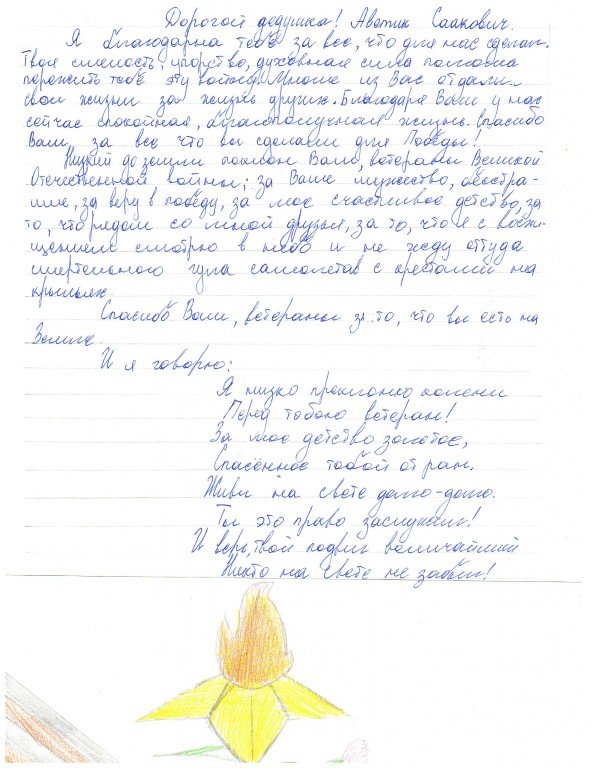 Дорогой дедушка! Аветик Саакович.
Я благодарна тебе за все, что для нас сделал.
Твоя смелость, упорство, духовная сила помогла
пережить тебе эту войну. Многие из Вас отдали
свои жизни за жизнь других. Благодаря Вам у нас
сейчас спокойная, благополучная жизнь. Спасибо
Вам, за все что вы сделали для Победы!
Низкий до земли поклон Вам, ветераны Великой
Отечественной войны; за Ваше мужество, бесстра-
шие, за веру в победу, за мое счастливое детство, за
то, что рядом со мной друзья, за то, что я с восхи-
щением смотрю в небо и не жду оттуда
смертельного гула самолетов с крестами на
крыльях.
Спасибо Вам, ветераны за то, что вы есть на
Земле.
И я говорю:
Я низко преклоняю колени
Перед тобою ветеран!
За мое детство золотое,
Спасённое тобой от ран.
Живи на свете долго-долго.
Ты это право заслужил!
И верь, твой подвиг величайший
Никто на свете не забыл!